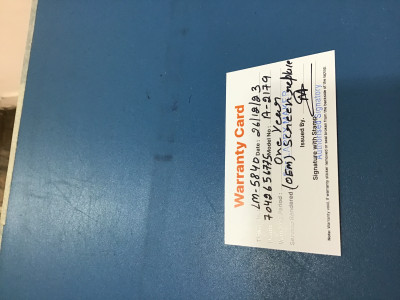 Warranty Card
LM-5840 Date: 26/12/23
7042656775 Model No.: A-2179
One Year
(OEM) Screen replace
Issued By.
Signature with Stamp
Authorised Signatory
Note: Warranty void, if warranty sticker removed or seal broken from the backside of the laptop.